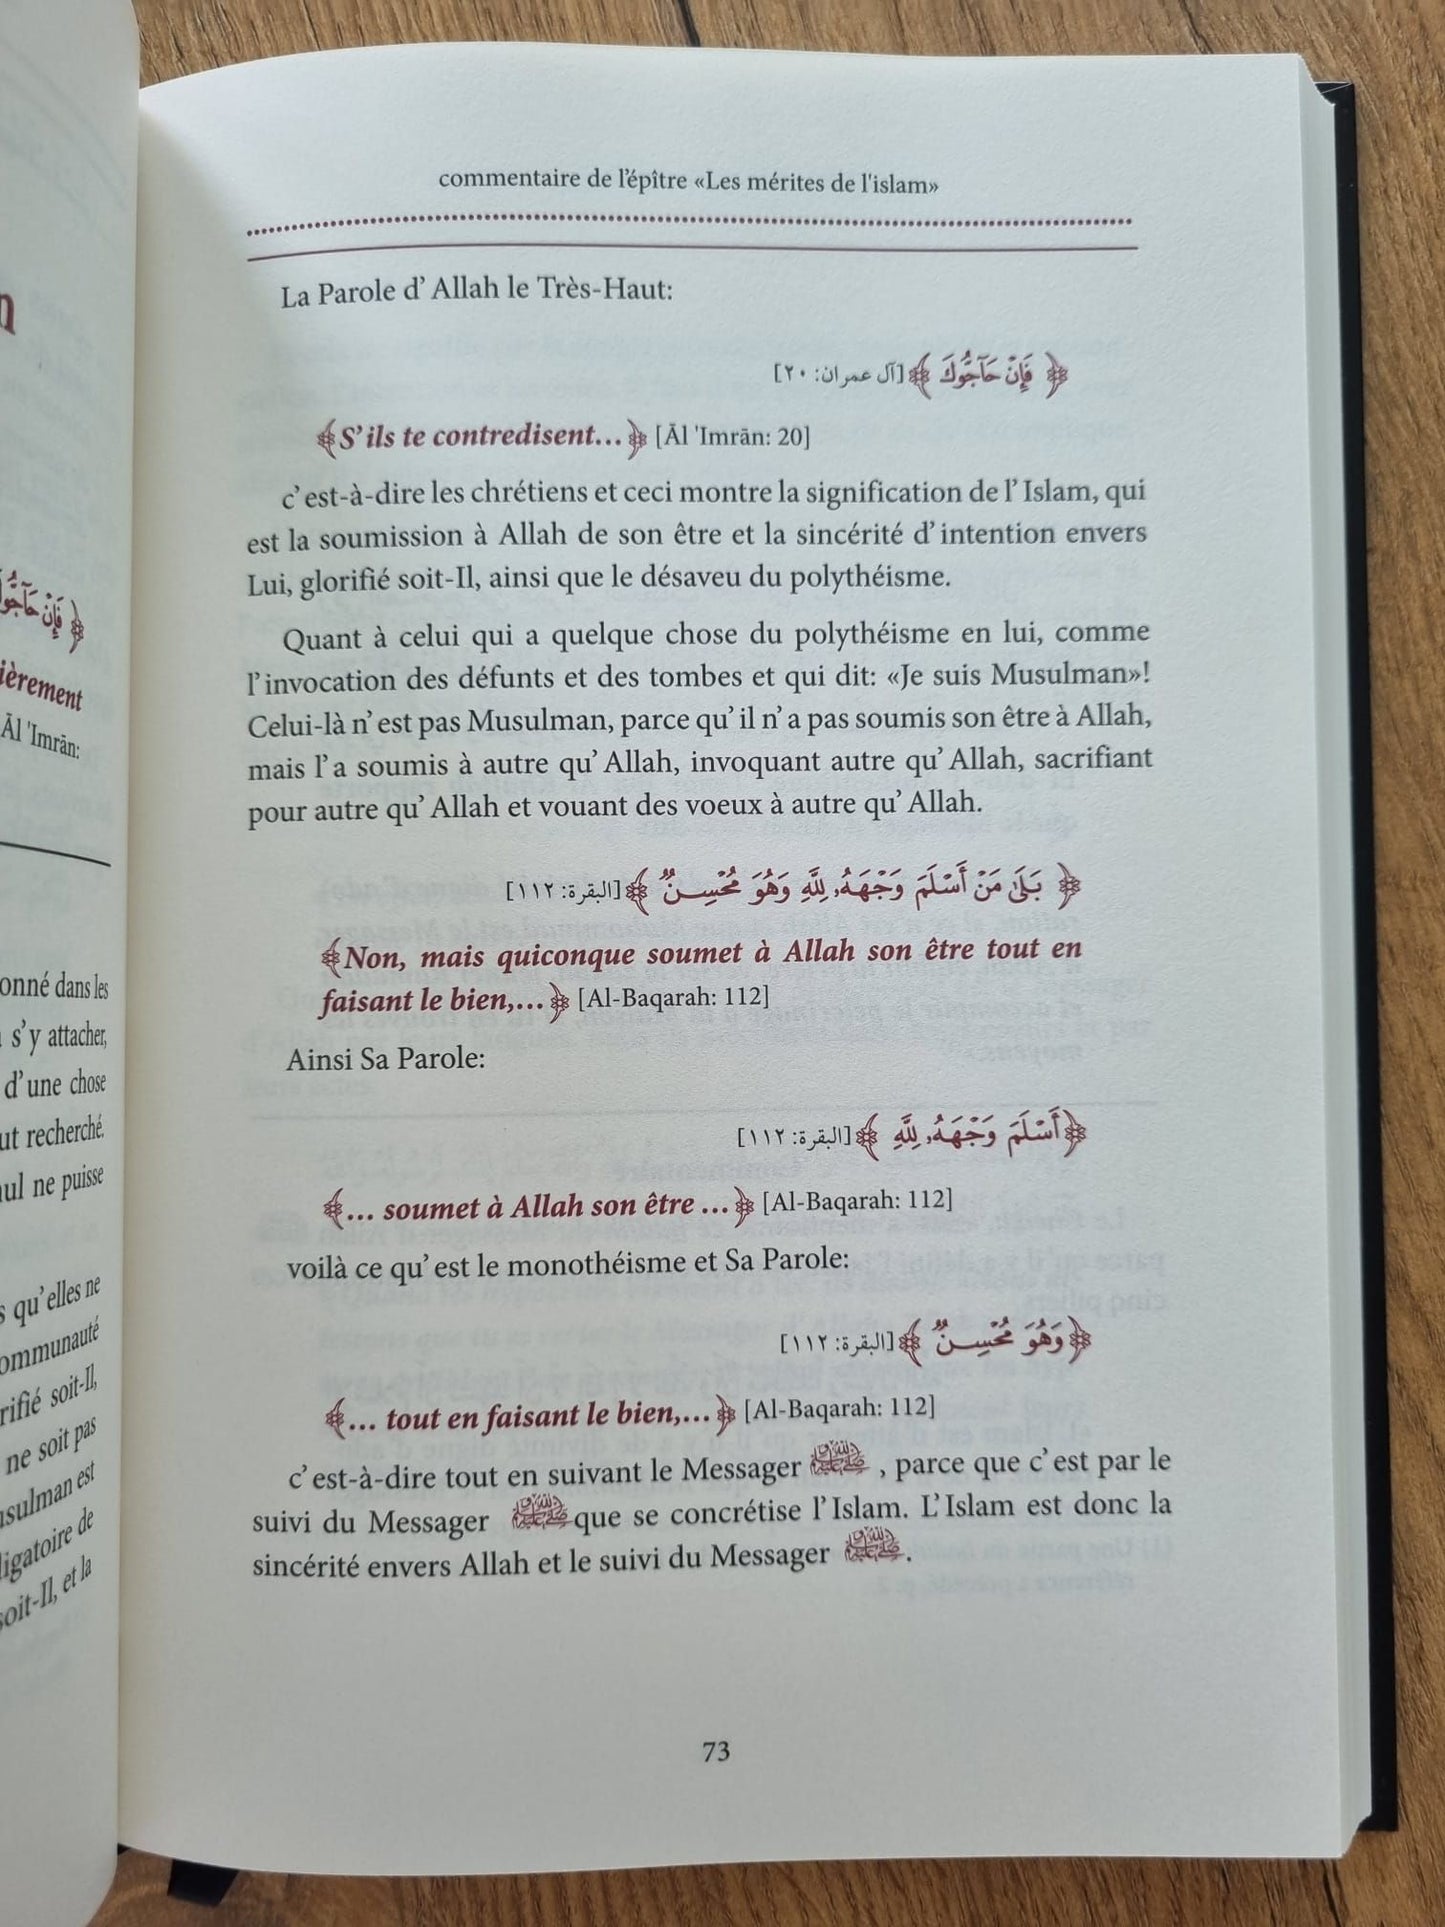 n
فَإِنْ حَآجُّو
ièrement
Āl 'Imrān:
onné dans les
s'y attacher,
d'une chose
ut recherché.
nul ne puisse
s qu'elles ne
ommunauté
rifié soit-Il,
ne soit pas
usulman est
ligatoire de
soit-Il, et la
commentaire de l'épître «Les mérites de l'islam»
La Parole d'Allah le Très-Haut:
﴿ فَإِنْ حَآجُّوكَ ﴾ [آل عمران: ٢٠]
﴾S'ils te contredisent...﴿ [Āl 'Imrān: 20]
c'est-à-dire les chrétiens et ceci montre la signification de l'Islam, qui
est la soumission à Allah de son être et la sincérité d'intention envers
Lui, glorifié soit-Il, ainsi que le désaveu du polythéisme.
Quant à celui qui a quelque chose du polythéisme en lui, comme
l'invocation des défunts et des tombes et qui dit: «Je suis Musulman»!
Celui-là n'est pas Musulman, parce qu'il n'a pas soumis son être à Allah,
mais l'a soumis à autre qu'Allah, invoquant autre qu'Allah, sacrifiant
pour autre qu'Allah et vouant des voeux à autre qu'Allah.
﴿ بَلَىٰ مَنْ أَسْلَمَ وَجْهَهُۥ لِلَّهِ وَهُوَ مُحْسِنٌ ﴾ [البقرة: ١١٢]
﴾Non, mais quiconque soumet à Allah son être tout en
faisant le bien,...﴿ [Al-Baqarah: 112]
Ainsi Sa Parole:
﴿أَسْلَمَ وَجْهَهُۥ لِلَّهِ ﴾ [البقرة: ١١٢]
﴾... soumet à Allah son être ...﴿ [Al-Baqarah: 112]
voilà ce qu'est le monothéisme et Sa Parole:
﴿وَهُوَ مُحْسِنٌ ﴾ [البقرة: ١١٢]
﴾... tout en faisant le bien,...﴿ [Al-Baqarah: 112]
c'est-à-dire tout en suivant le Messager ﷺ , parce que c'est par le
suivi du Messager ﷺ que se concrétise l'Islam. L'Islam est donc la
sincérité envers Allah et le suivi du Messager ﷺ.
73